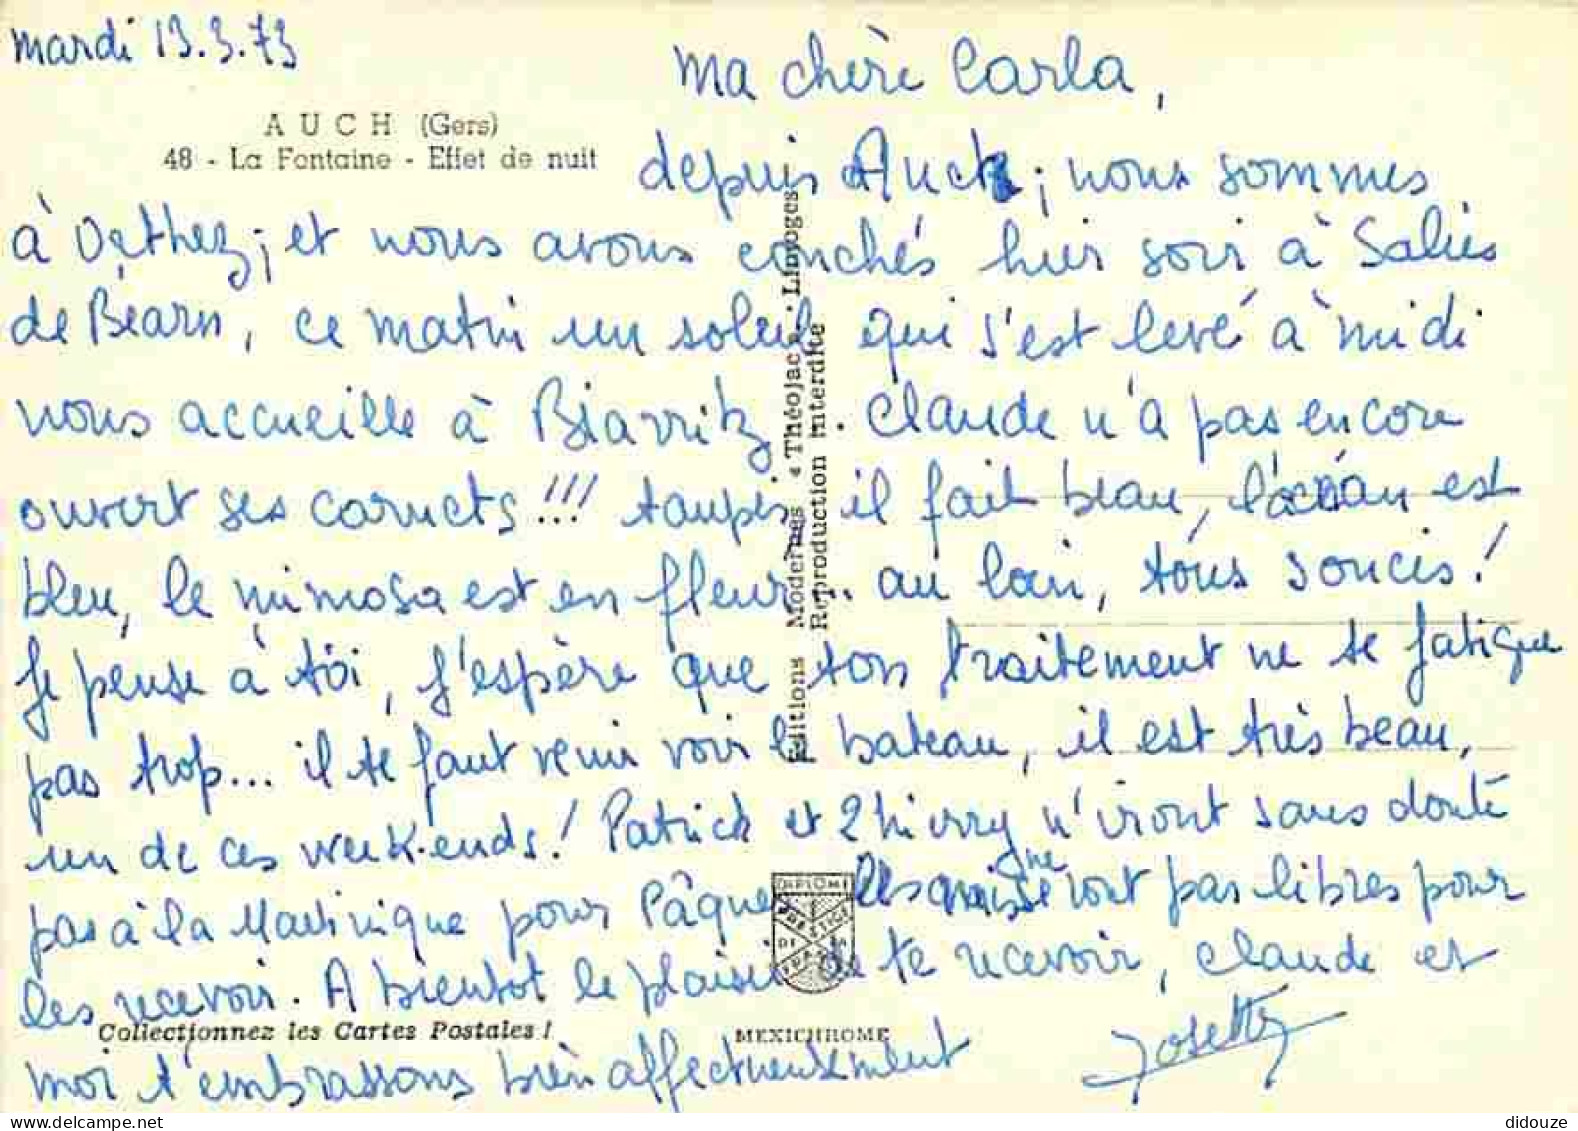 mardi 13.3.73
Ma chère Carla,
AUCH (Gers)
48 - La Fontaine - Effet de nuit
depuis Auch, nous sommes
à Orthez, et nous avons couchés hier soir à Salies
de Béarn, ce matin un soleil qui s'est levé à midi
nous accueille à Biarritz. Claude n'a pas encore
ouvert ses carnets !!! tanpis, il fait beau, l'océan est
bleu, le mimosa est en fleur... au loin, tous soucis !
Je pense à toi, j'espère que ton traitement ne te fatigue
pas trop... il te faut venir voir le bateau, il est très beau,
un de ces week-ends ! Patrick et Thierry n'iront sans doute
pas à la Martinique pour Pâques les amis ne sont pas libres pour
les recevoir. A bientôt le plaisir de te recevoir, Claude et
moi t'embrassons bien affectueusement
Josette
Editions Modernes « Théojac » - Limoges
Reproduction interdite
DIPLOME
PRESTIGE
DE
Collectionnez les Cartes Postales !
MEXICHROME
didouze